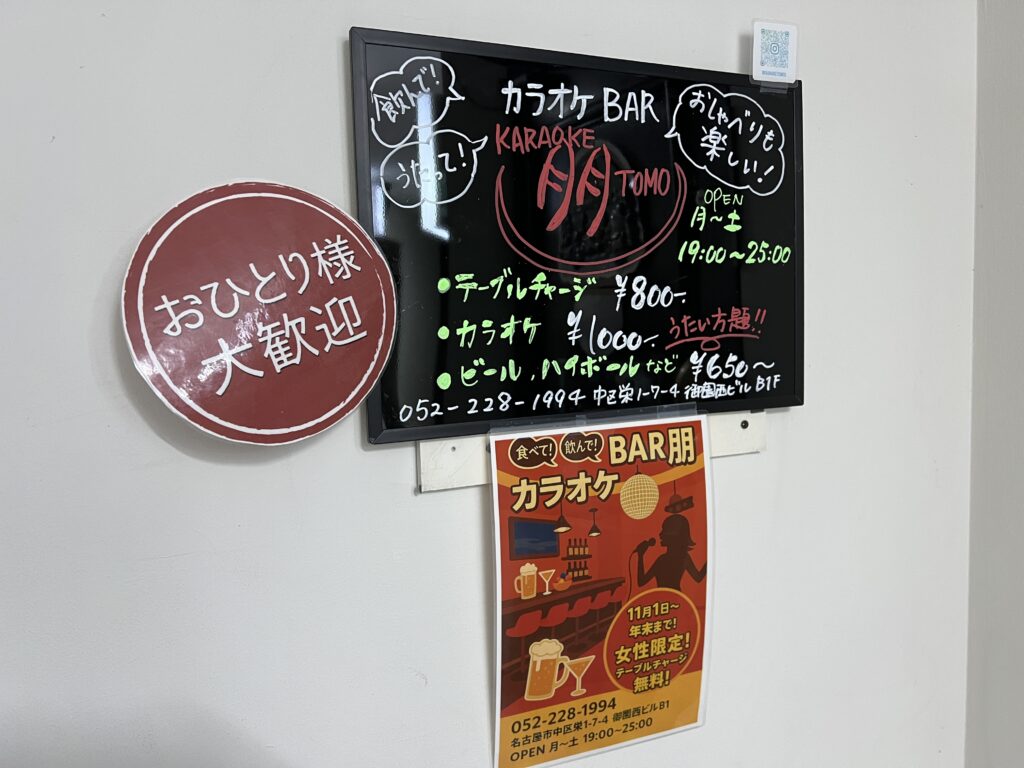 飲んで!
うたって!
カラオケ BAR
KARAOKE
朋 TOMO
おしゃべりも
楽しい!
OPEN
月〜土
19:00〜25:00
おひとり様
大歓迎
●テーブルチャージ ¥800-
●カラオケ ¥1000- うたい方題!!
●ビール,ハイボールなど ¥650〜
052-228-1994 中区栄1-7-4 御園西ビルB1F
食べて! 飲んで! BAR朋
カラオケ
11月1日〜
年末まで!
女性限定!
テーブルチャージ
無料!
052-228-1994
名古屋市中区栄1-7-4 御園西ビルB1
OPEN 月〜土 19:00〜25:00